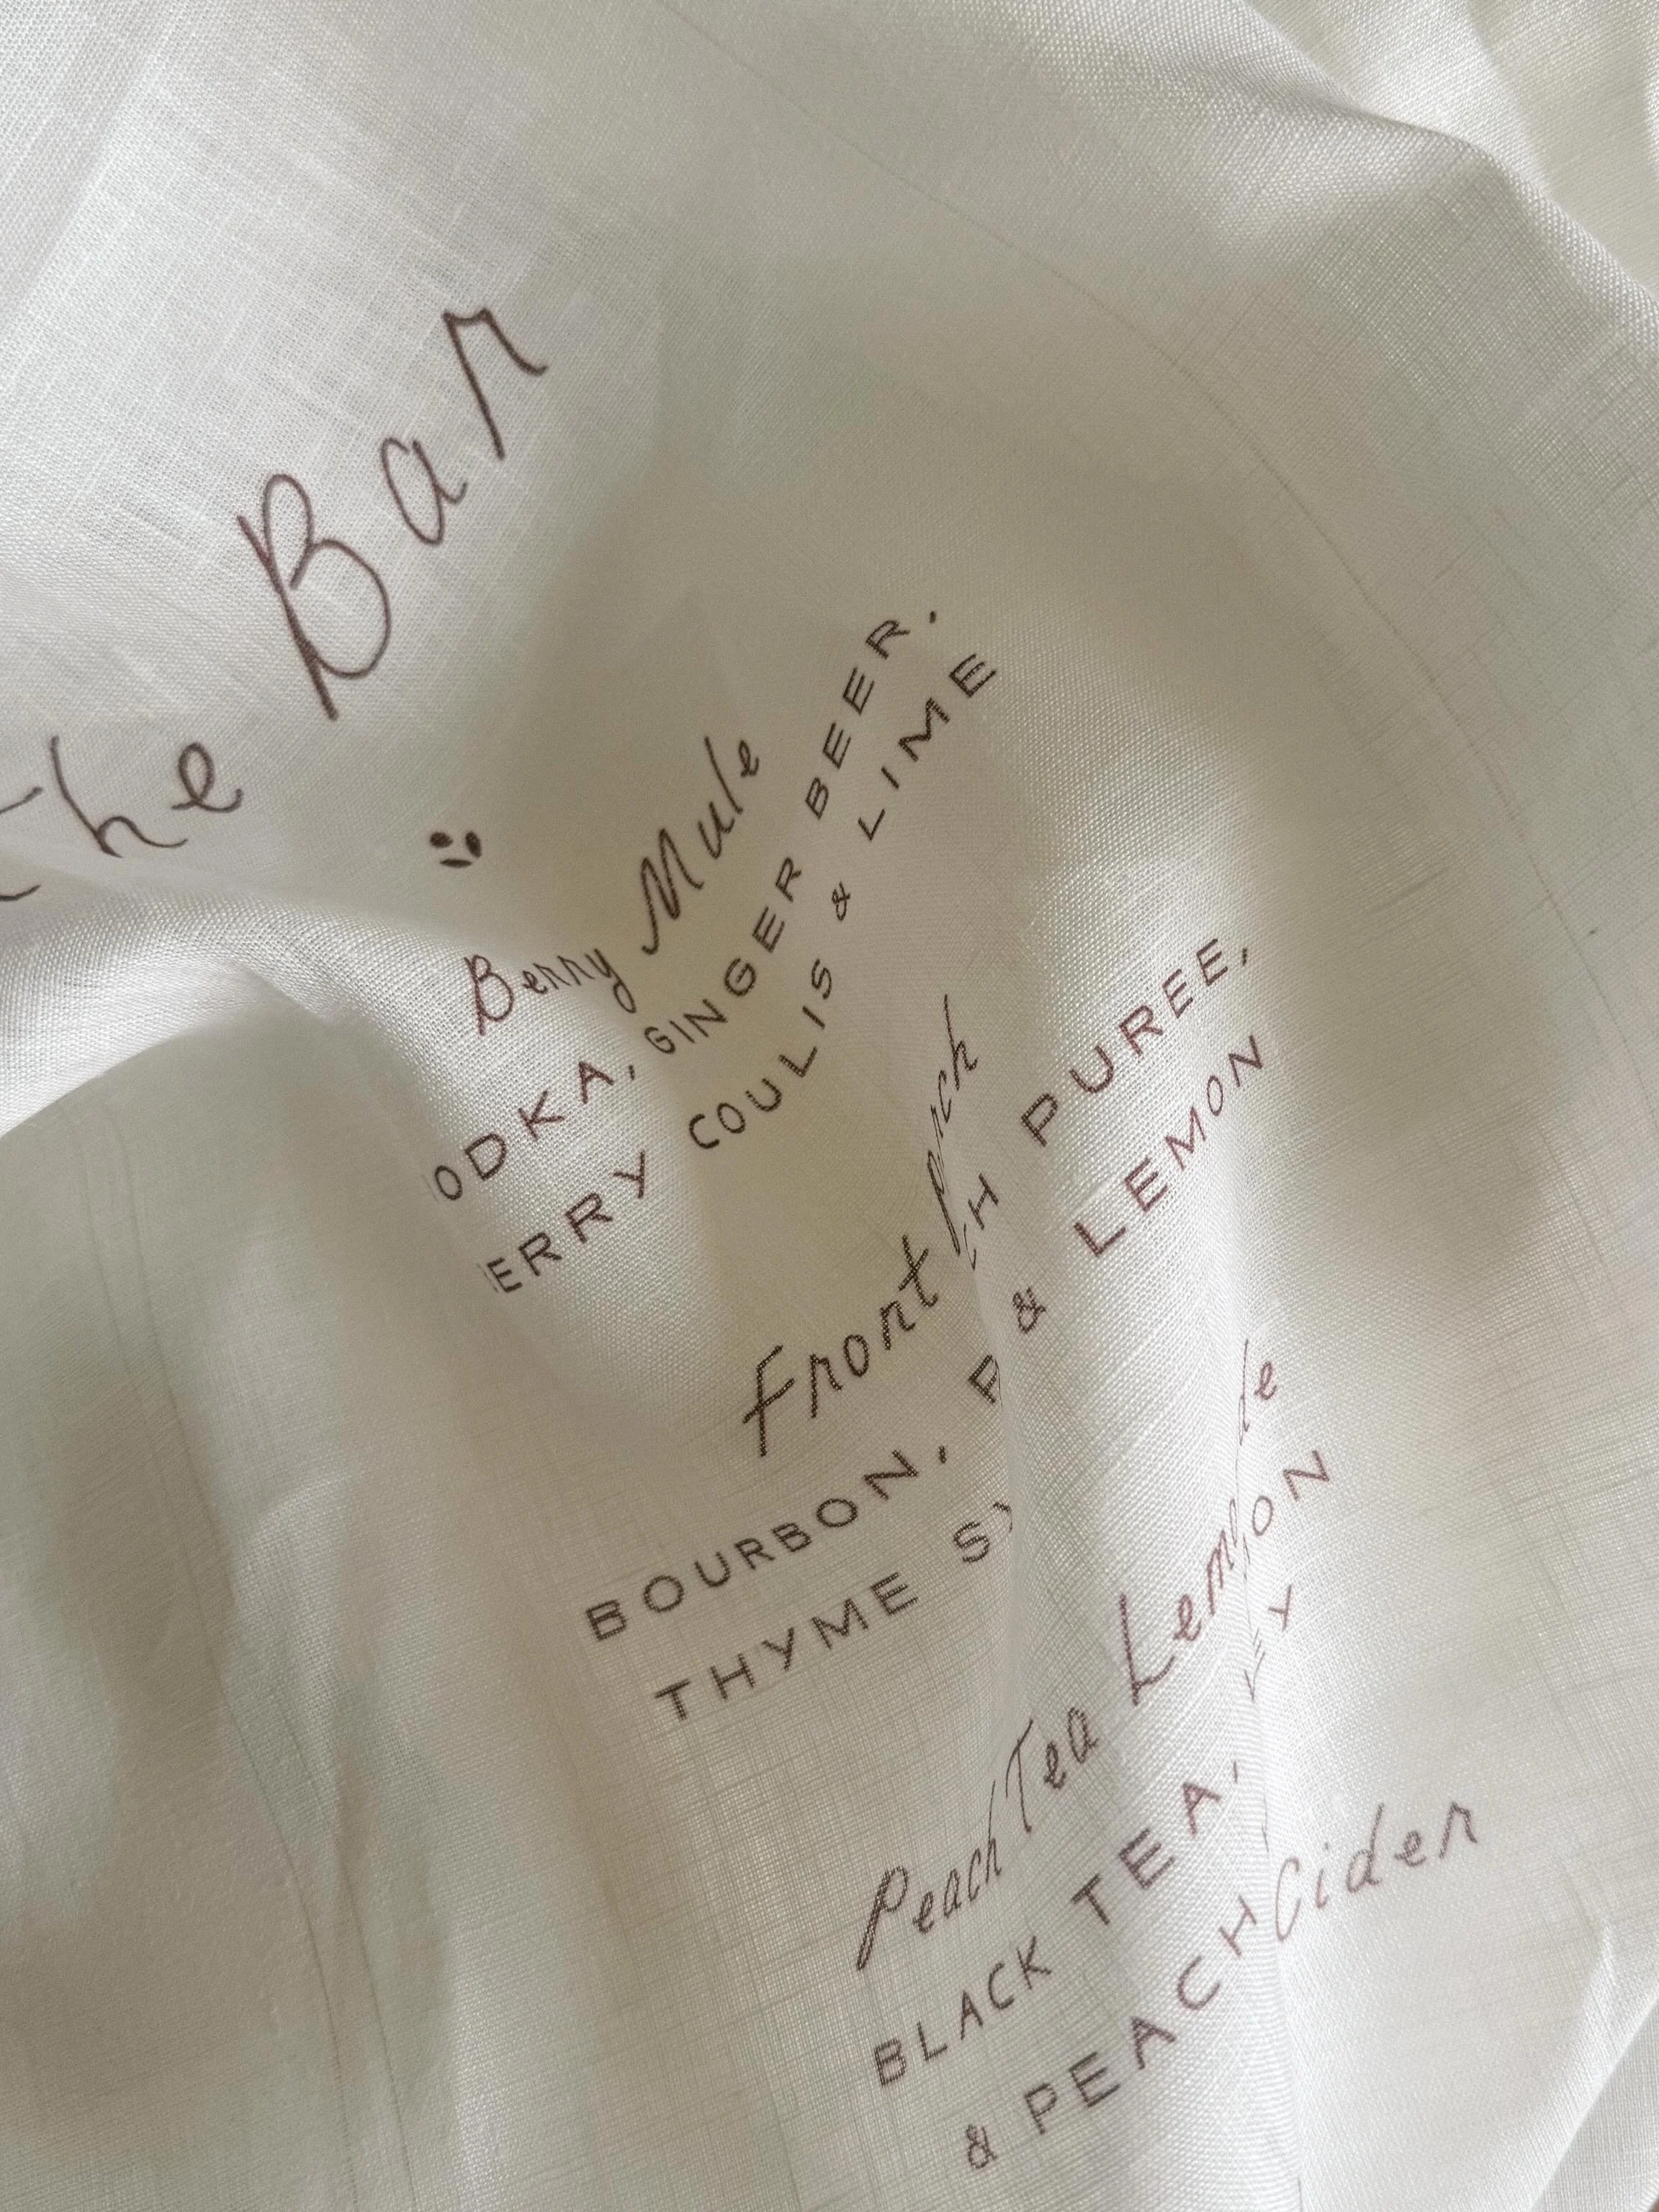 the Bar
Berry Mule
ODKA, GINGER BEER,
ERRY COULIS & LIME
Front Porch
BOURBON, P CH PUREE,
THYME SY & LEMON
Peach Tea Lemonade
BLACK TEA, LEMON
& PEACH
Cider